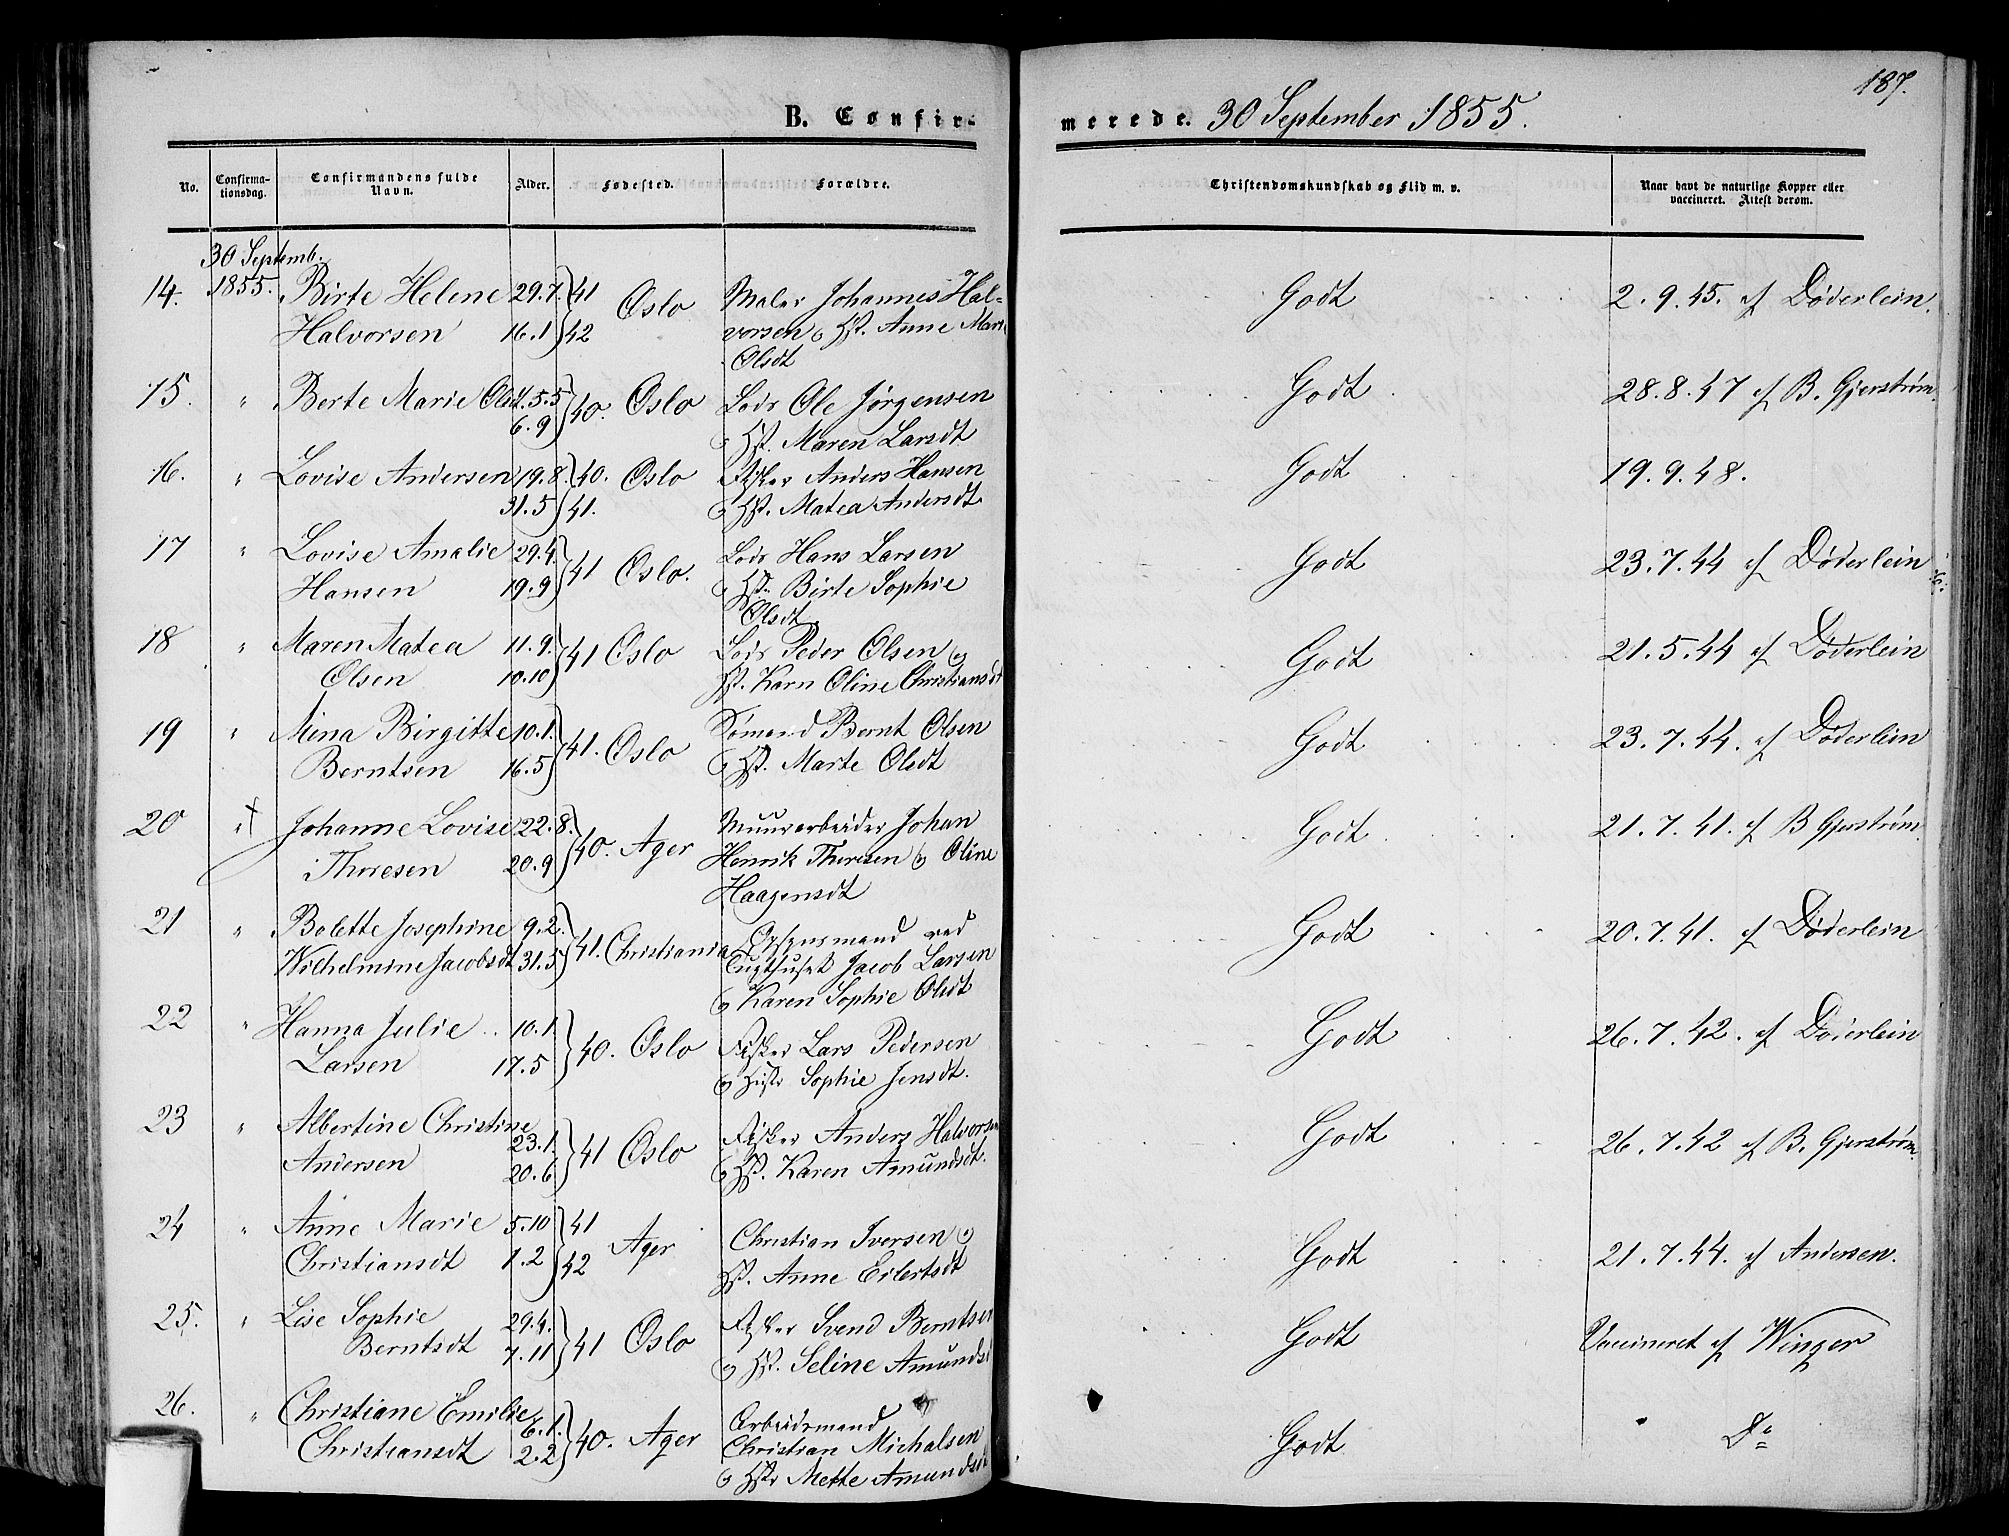 187.
B. Confirmerede. 30 September 1855.
No. Confirmationsdag. Confirmandens fulde Navn. Alder. Fødested. Forældre. Christendomskundskab og Flid m. v. Naar havt de naturlige Kopper eller vaccineret. Attest derom.
30 Septemb.
14. 1855. Birte Helene 29.7. 41 Oslo Maler Johannes Hal- Godt 2.9.45. af Døderlein.
Halvorsen 16.1 42 vorsen og Hst. Anne Mari
Olsdt
15. " Berte Marie Ols 5.5 40. Oslo Lods Ole Jørgensen Godt 28.8.47 af B. Gjerstrøm.
6.9 og Hst. Maren Larsdt
16. " Lovise Andersen 19.8. 40. Oslo Fisker Anders Hansen Godt 19.9.48.
31.5 41. og Hst. Matea Andersdt
17 " Lovise Amalie 29.4. 41 Oslo. Lods Hans Larsen Godt 23.7.44 af Døderlein
Hansen 19.9 og Hst. Birte Sophie
Olsdt.
18 " Maren Matea 11.9. 41 Oslo Lods Peder Olsen og Godt 21.5.44 af Døderlein
Olsen 10.10 Hst. Karn Oline Christiansdt
19 " Mina Birgitte 10.1. 41. Oslo Sømand Bernt Olsen Godt 23.7.44. af Døderlein
Berntsen 16.5 og Hst. Marte Olsdt
20 " Johanne Lovise 22.8. 40. Ager Muurarbeider Johan Godt 21.7.41. af B Gjerstrøm.
Thoresen 20.9 Henrik Thoresen og Oline
Haagensdt
21 " Bolette Josephine 9.2. 41. Christiania Opsynsmand ved Godt 20.7.41. af Døderlein
Wilhelmine Jacobsdt 31.5 Tugthuset Jacob Larsen
og Karen Sophie Olsdt
22 " Hanna Julie 10.1. 40. Oslo Fisker Lars Pedersen Godt 26.7.42. af Døderlein
Larsen 17.5 og Hstr Sophie Jensdt.
23 " Albertine Christine 23.1. 41 Oslo Fisker Anders Halvorsen Godt 26.7.42 af B. Gjerstrøm.
Andersen 20.6 og Hst. Karen Amundsdt.
24 " Anne Marie 5.10 41 Ager Christian Iversen og Godt 21.7.44. af Andersen.
Christiansdt 1.2 42 Hst. Anne Eilertsdt
25. " Lise Sophie 29.4. 41 Oslo Fisker Svend Berntsen Godt Vaccineret af Winger
Berntsdt 7.11 og Hst. Seline Amundsd
26. " Christiane Emilie 6.1. 40. Ager Arbeidsmand Godt Do
Christiansdt 2.2 Christian Michalsen
og Hstr Mette Amundsdt